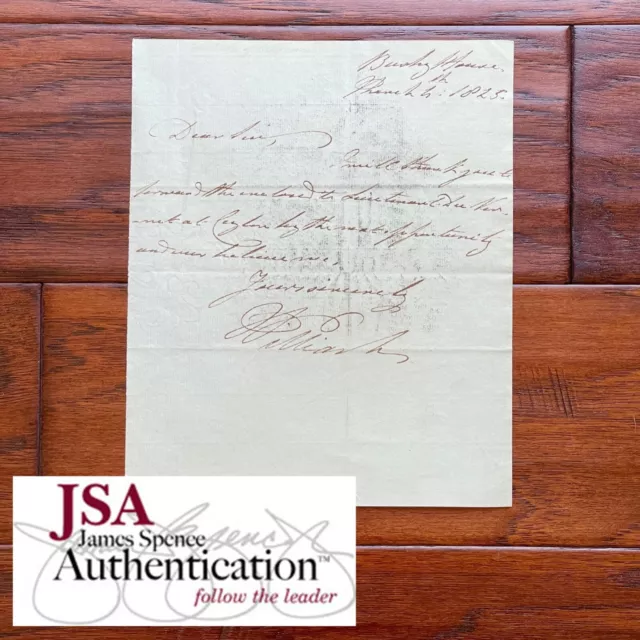 Bushy House.
March 4th: 1825.
Dear Sir,
I will thank you to
forward the enclosed to Lieutenant De
at Ceylon by the next opportunity
and ever believe me
Yours sincerely
William
JSA
James Spence
Authentication™
follow the leader